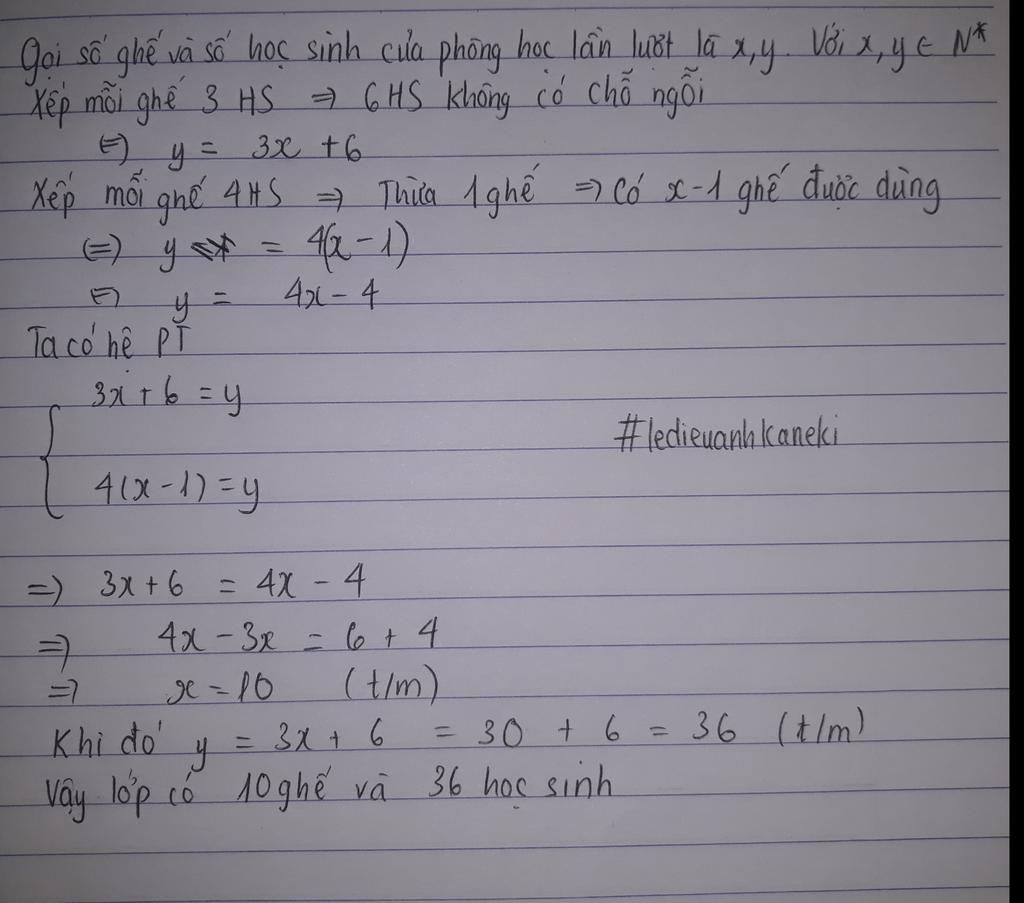 Gọi số ghế và số học sinh của phòng học lần lượt là x,y. Với x,y ∈ N*
Xếp mỗi ghế 3 HS ⇒ 6 HS không có chỗ ngồi
⇔ y = 3x + 6
Xếp mỗi ghế 4 HS ⇒ Thừa 1 ghế ⇒ Có x-1 ghế được dùng
⇔ y = 4(x - 1)
⇔ y = 4x - 4
Ta có hệ PT
3x + 6 = y
#ledieuanhkaneki
4(x - 1) = y
⇒ 3x + 6 = 4x - 4
⇒ 4x - 3x = 6 + 4
⇒ x = 10 (t/m)
Khi đó y = 3x + 6 = 30 + 6 = 36 (t/m)
Vậy lớp có 10 ghế và 36 học sinh